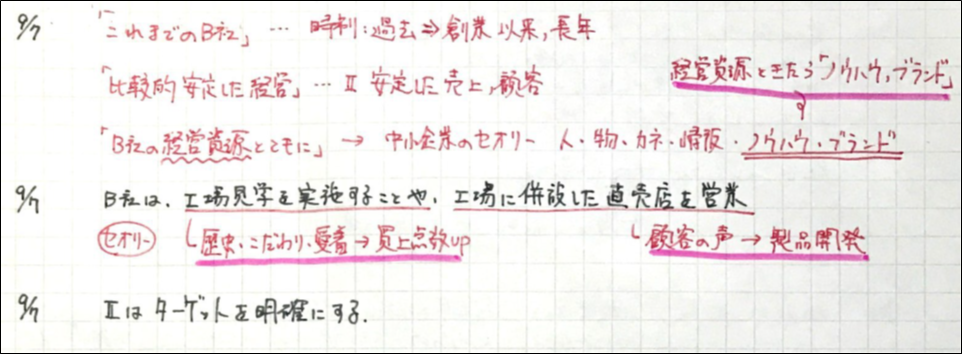 9/7 「これまでのB社」 … 時制:過去⇒創業以来,長年
「比較的安定した経営」… Ⅱ 安定した売上,顧客
経営資源ときたら「ノウハウ,ブランド」
「B社の経営資源とともに」→ 中小企業のセオリー 人・物・カネ・情報・ノウハウ・ブランド
9/7 B社は、工場見学を実施することや、工場に併設した直売店を営業
セオリー 歴史、こだわり、愛着→買上点数up 顧客の声→製品開発
9/7 Ⅱはターゲットを明確にする.